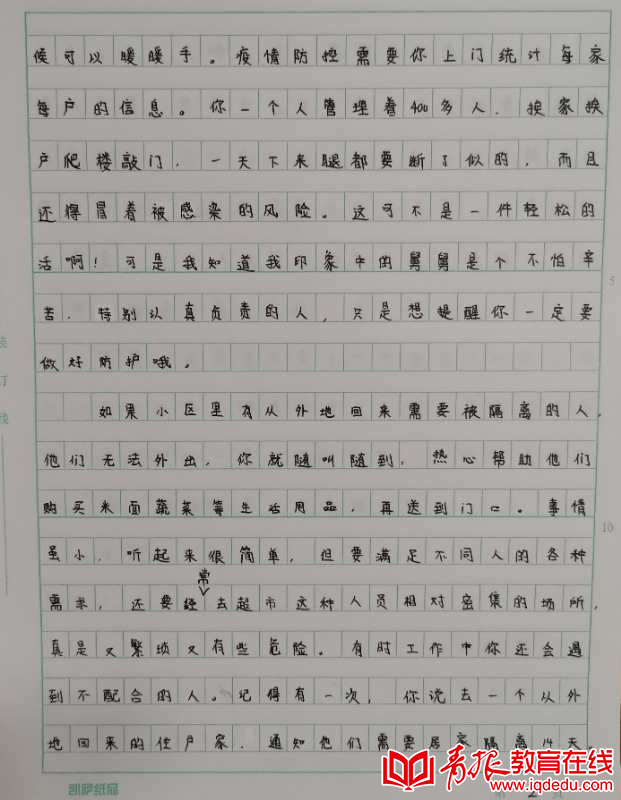 候可以暖暖手。疫情防控需要你上门统计每家
每户的信息。你一个人管理着400多人,挨家挨
户爬楼敲门,一天下来腿都要断了似的,而且
还得冒着被感染的风险。这可不是一件轻松的
活啊!可是我知道我印象中的舅舅是个不怕辛
5
苦,特别认真负责的人,只是想提醒你一定要
做好防护哦。
如果小区里有从外地回来需要被隔离的人,
他们无法外出,你就随叫随到,热心帮助他们
购买米面蔬菜等生活用品,再送到门口。事情
10
虽小,听起来很简单,但要满足不同人的各种
需求,还要经常去超市这种人员相对密集的场所,
真是又繁琐又有些危险。有时工作中你还会遇
到不配合的人。记得有一次,你说去一个从外
地回来的住户家,通知他们需要居家隔离14天。
装
订
线
凯萨纸品
青报教育在线
www.iqdedu.com